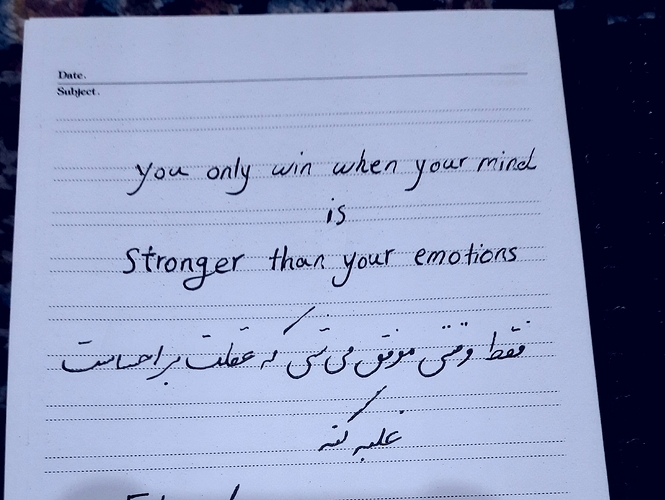 Date.
Subject.
you only win when your mind
is
Stronger than your emotions
فقط وقتی موفق می شی که عقلت بر احساست
غلبه کنه